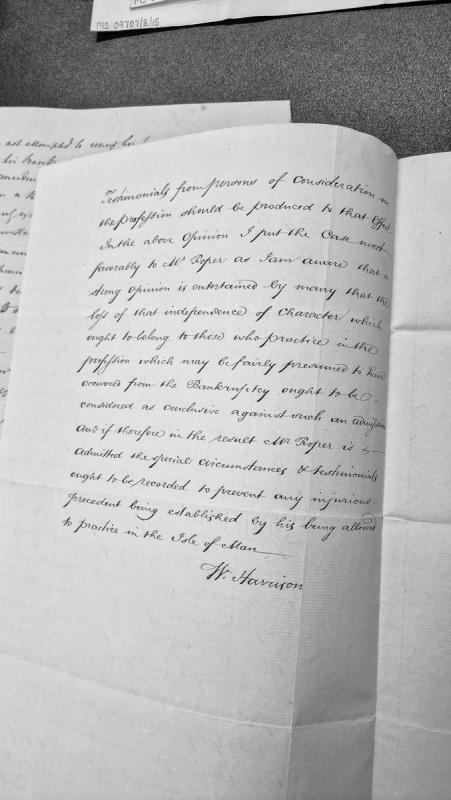 MS 09707/8/15
not attempted to
his Bank
Testimonials from persons of Consideration in
the profession should be produced to that Effect.
In the above Opinion I put the Case most
favorably to Mr Roper as I am aware that a
strong Opinion is entertained by many that the
loss of that independence of Character which
ought to belong to those who practice in the
profession which may be fairly presumed to have
occurred from the Bankruptcy ought to be
considered as conclusive against such an admission
and if therefore in the result Mr Roper is
admitted the special circumstances & testimonials
ought to be recorded to prevent any injurious
precedent being established by his being allowed
to practice in the Isle of Man
W. Harrison